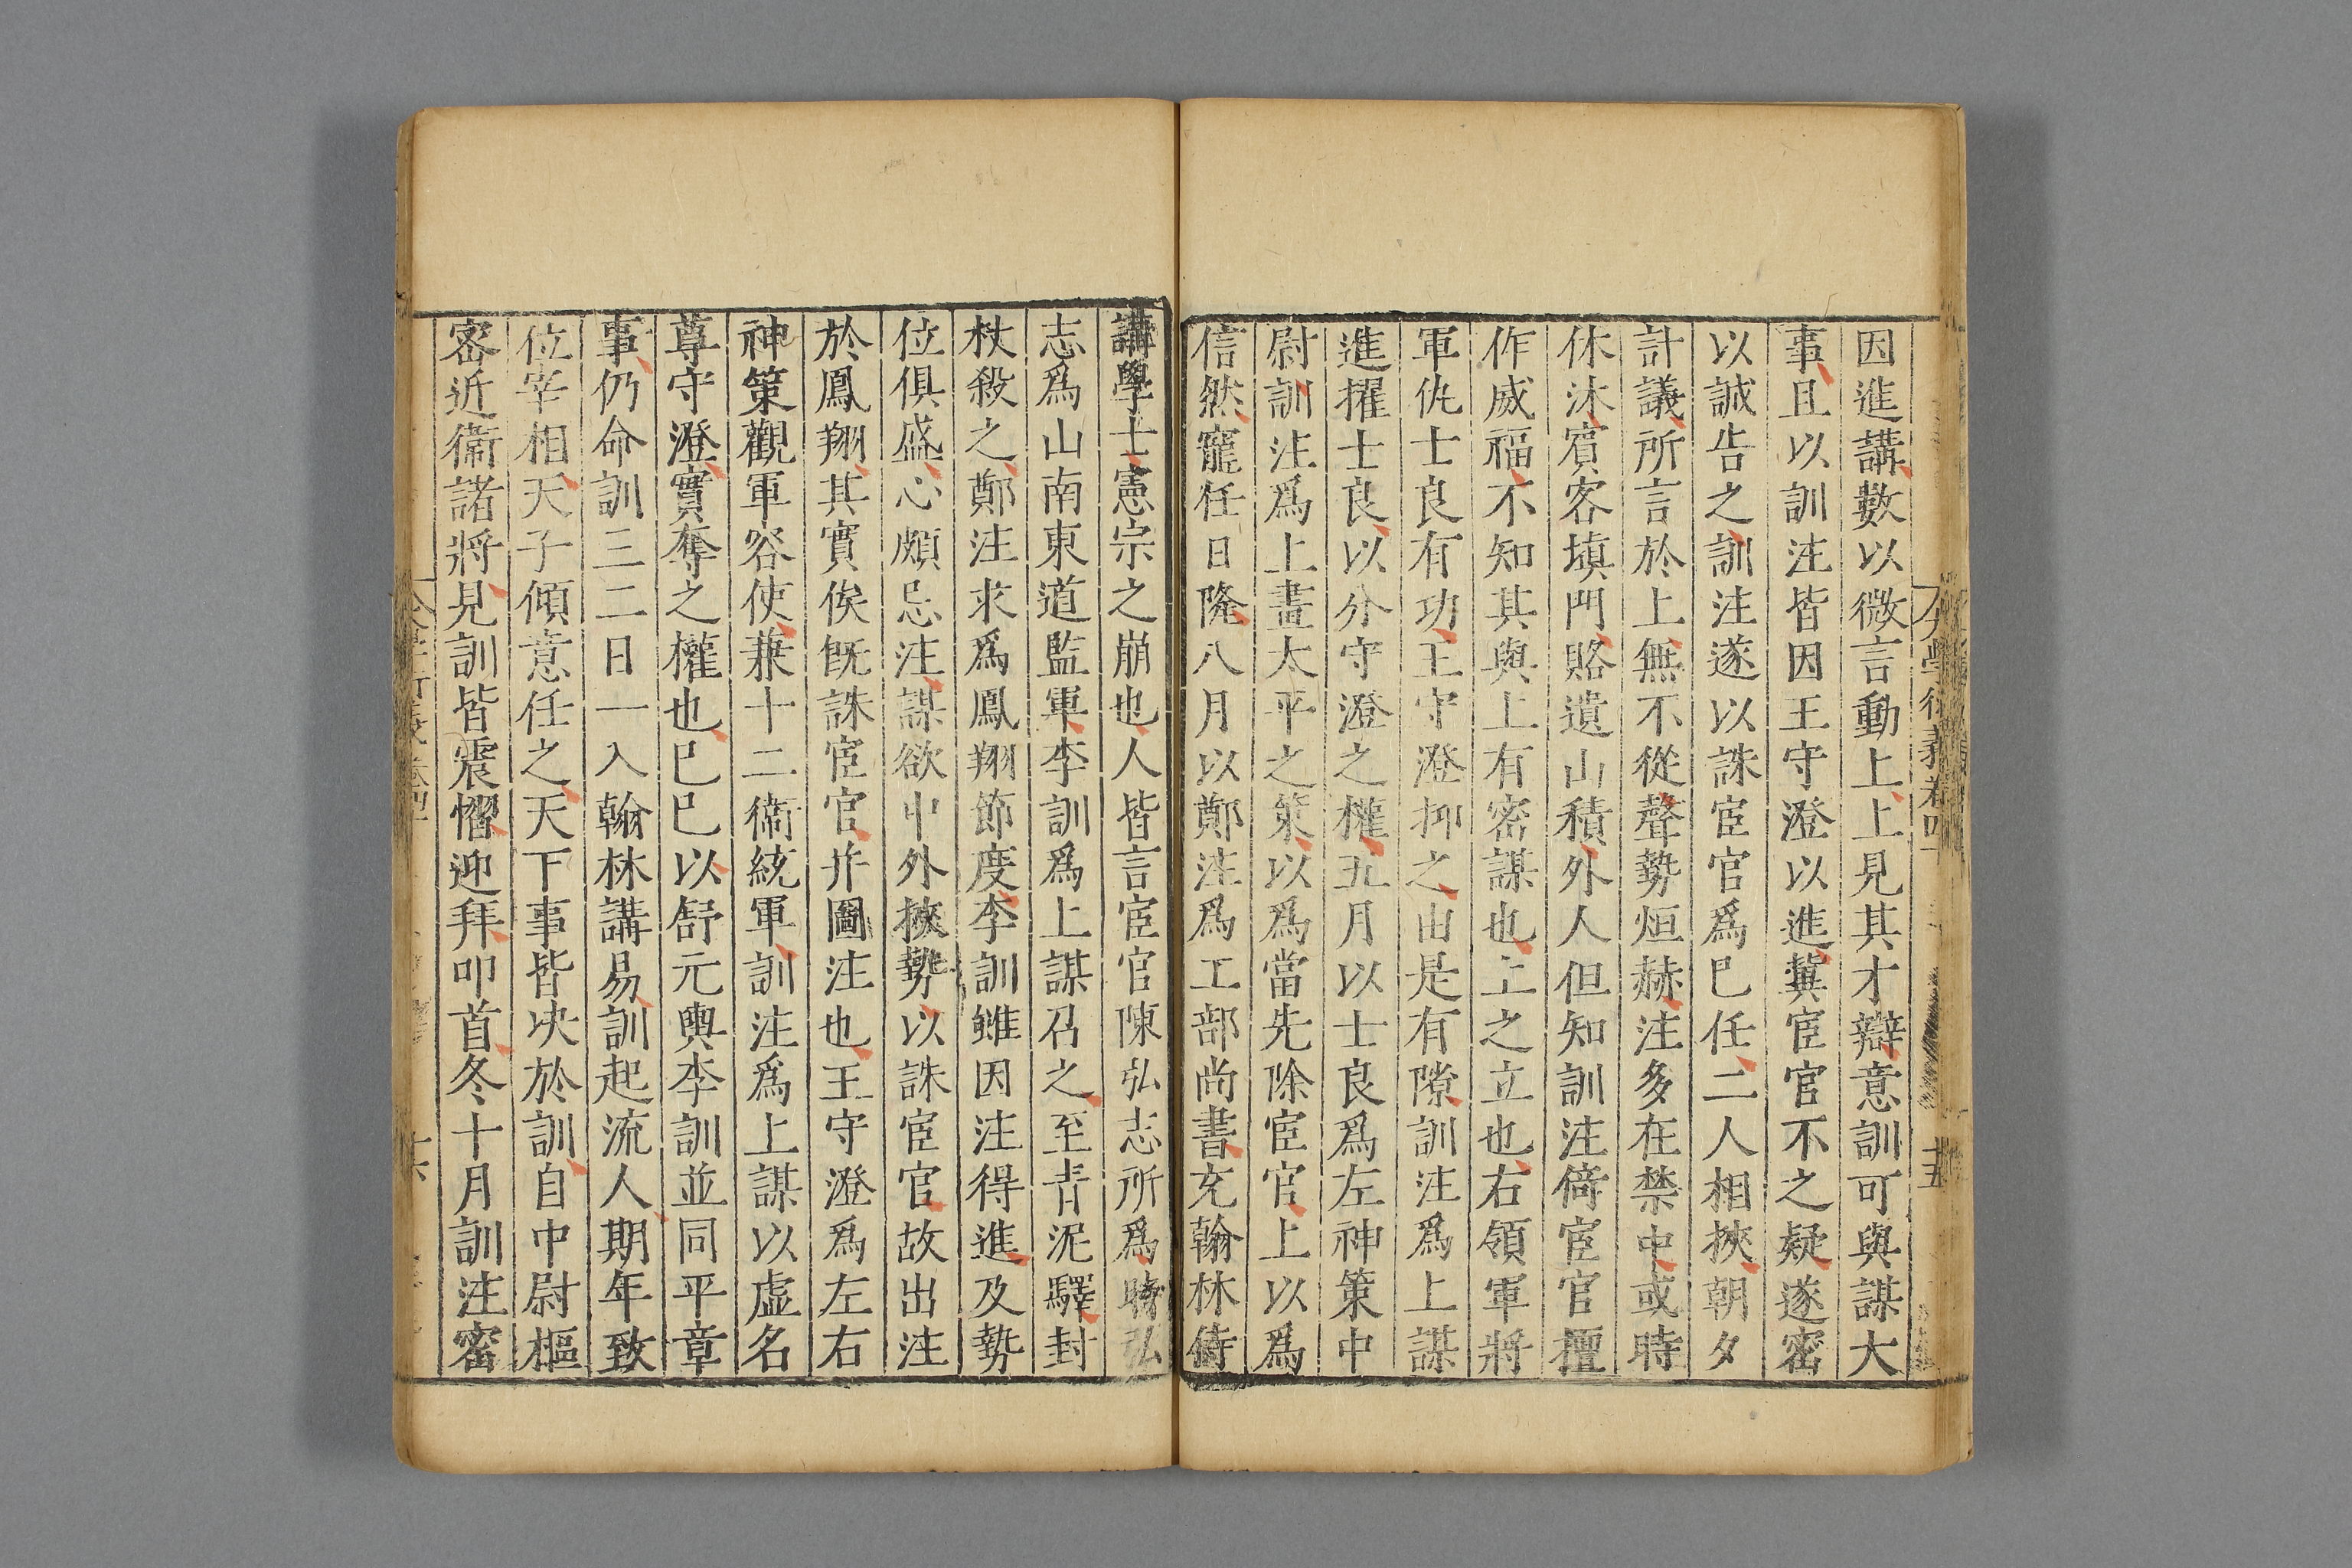 因進講數以微言動上上見其才辯意訓可與謀大
事且以訓注皆因王守澄以進冀宦官不之疑遂密
以誠告之訓注遂以誅宦官爲巳任二人相挾朝夕
計議所言於上無不從聲勢烜赫注多在禁中或時
休沐賓客塡門賂遺山積外人但知訓注倚宦官擅
作威福不知其與上有密謀也上之立也右領軍將
軍仇士良有功王守澄抑之由是有隙訓注爲上謀
進擢士良以分守澄之權五月以士良爲左神策中
尉訓注爲上畫太平之策以爲當先除宦官上以爲
信然寵任日隆八月以鄭注爲工部尚書充翰林侍
講學士憲宗之崩也人皆言宦官陳弘志所爲時弘
志爲山南東道監軍李訓爲上謀召之至青泥驛封
杖殺之鄭注求爲鳳翔節度李訓雖因注得進及勢
位俱盛心頗忌注謀欲中外挾勢以誅宦官故出注
於鳳翔其實俟旣誅宦官并圖注也王守澄爲左右
神策觀軍容使兼十二衞統軍訓注爲上謀以虛名
尊守澄實奪之權也巳巳以舒元輿李訓並同平章
事仍命訓三二日一入翰林講易訓起流人期年致
位宰相天子傾意任之天下事皆决於訓自中尉樞
密近衞諸將見訓皆震慴迎拜叩首冬十月訓注密
大學衍義卷四十 十五